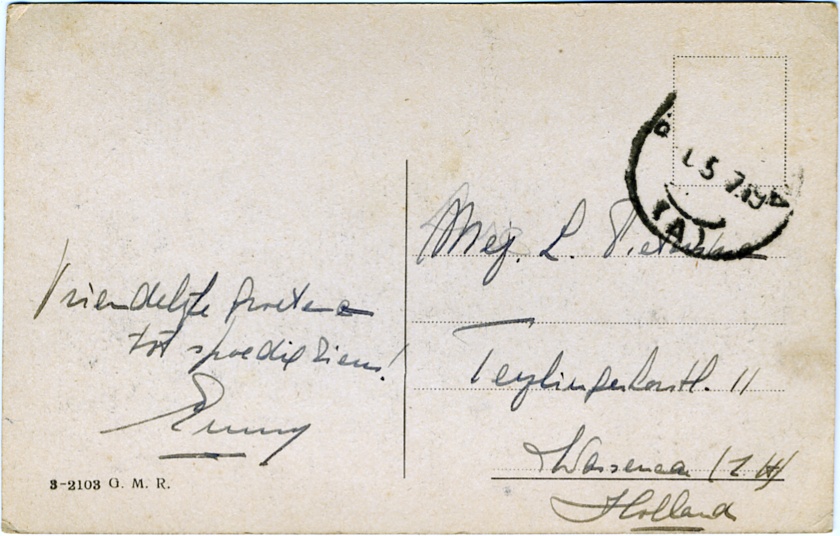 Vriendelijke Groeten
tot spoedig ziens!
Emmy
3-2103 G. M. R.
Mej. L.
Teylingerhorstl. 11
Wassenaar (Z H)
Holland